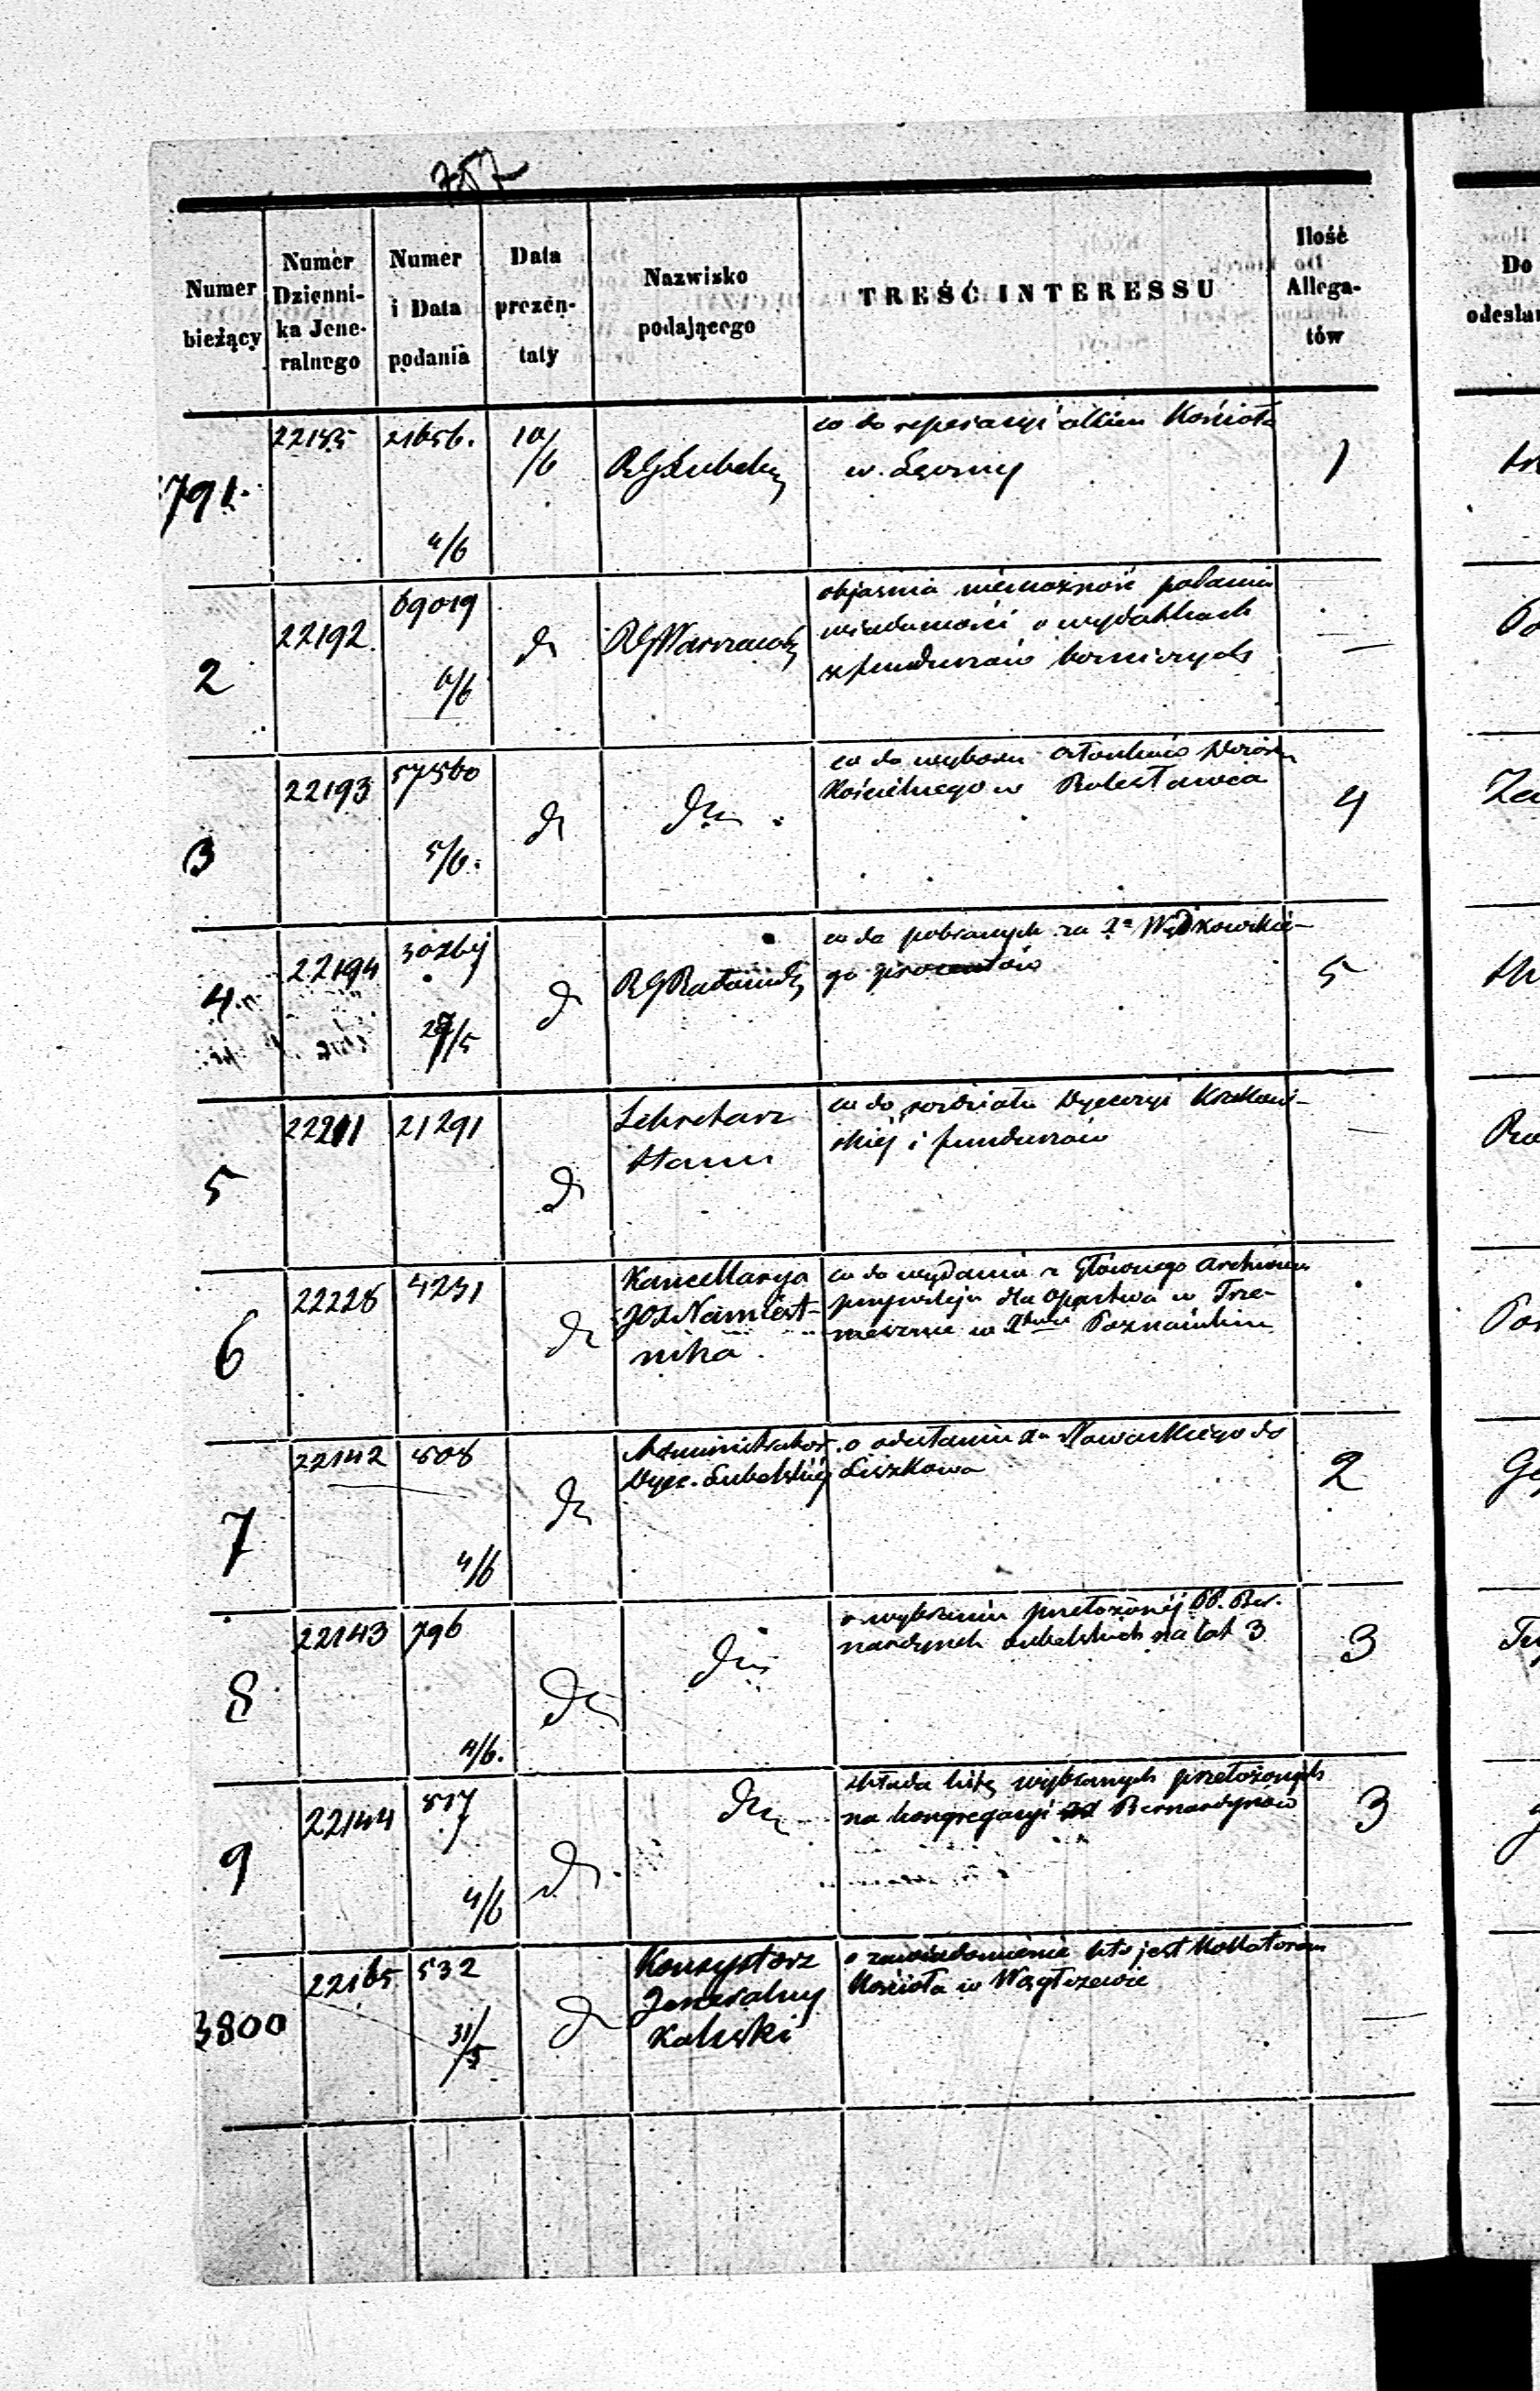 757
Numer bieżący
Numer Dzienni- ka Jene- ralnego
Numer i Data podania
Data prezen- taty
Nazwisko podającego
TREŚĆ INTERESSU
Ilość Allega- tów
Do
791.
21656.
4/6
10/6
RGLubelski
co do reperacyi okien Kościoła
w
1
2
22192
69019
6/6
RGWarszawski
objasnia niemożność podania
wiadomości o wydatkach
z funduszów
3
22193
57560
5/6.
co do wyboru członków Dozoru
Kościelnego w Bolesławcu
4
4.
22194
/5
RGRadomski
co do pobranych za
go procentów
5
5
21291
Sekretarz
Stanu
co do rozdziału Dyecezyi Krakow-
skiéj i funduszów
6
22228
4231
Kancellarya
JOXNamiest-
nika
co do wydania z Głównego Archiwum
przywileju dla Opactwa w Trze-
mesznie w Poznańskim
7
22142
508
4/6
Administrator
Dyec. Lubelskiéj
o odesłaniu Xa Nowackiego do
2
8
22143
796
4/6.
o wybraniu przełożonéj PP. Ber-
nardynek Lubelskich na lat 3
3
9
22144
517
4/6
składa listę wybranych przełożonych
na kongregacyi Bernardynów
3
3800
22165
532
31/5
Konsystorz
Jeneralny
Kaliski
o zawiadomienie kto jest Kollatorem
Kościoła w